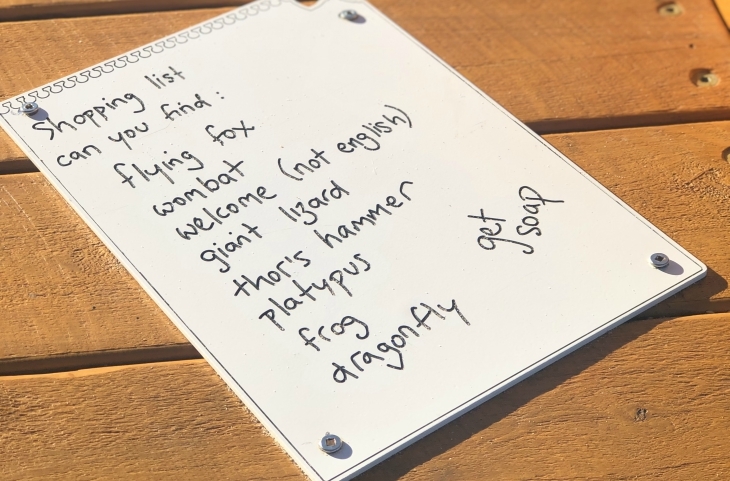 Shopping list
can you find:
flying fox
wombat
welcome (not english)
giant lizard
thor's hammer
platypus
frog
dragonfly
get
soap